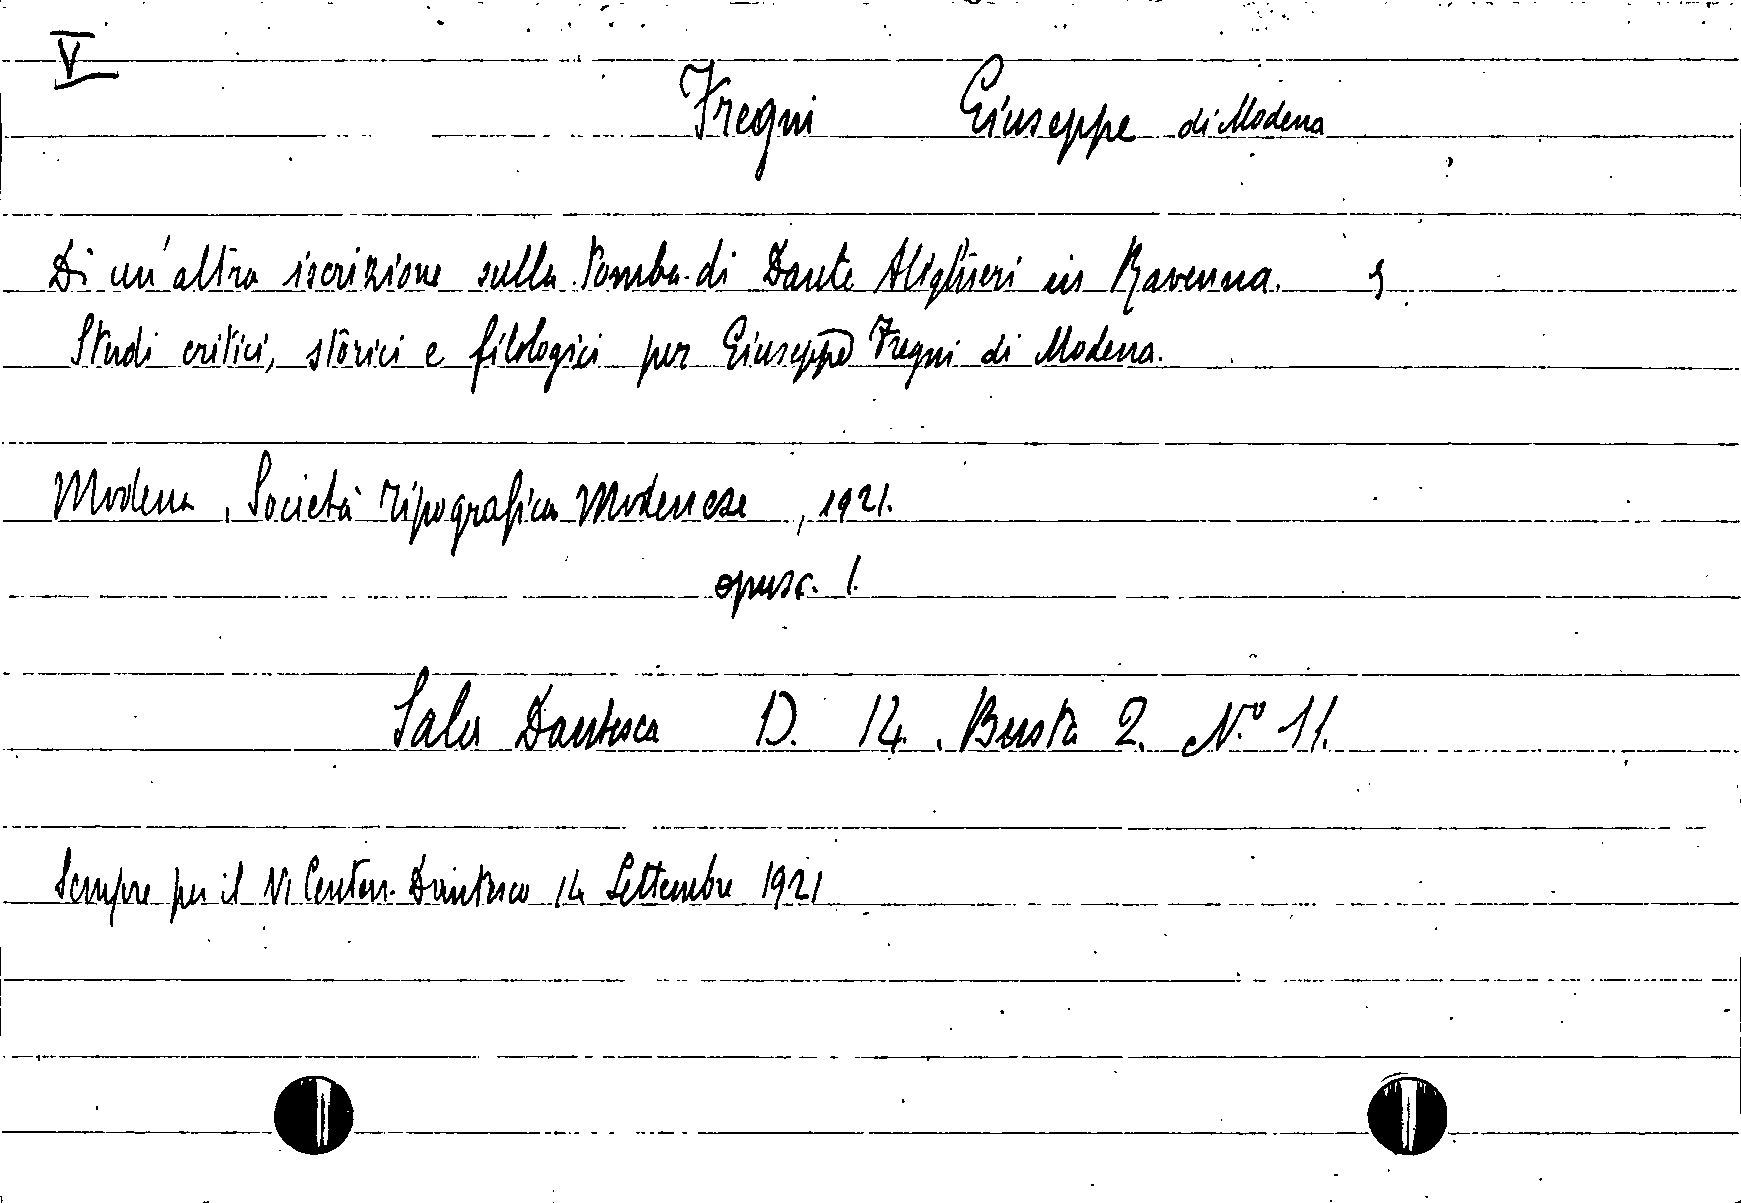 V
Fregni Giuseppe di Modena
Di un'altra iscrizione sulla Tomba di Dante Alighieri in Ravenna.
Studi critici, storici e filologici per Giuseppe Fregni di Modena.
Modena, Società Tipografica Modenese, 1921.
opusc. 1.
Sala Dantesca D. 14. Busta 2. N.º 11.
Sempre per il VI Centen. Dantesco 14 Settembre 1921